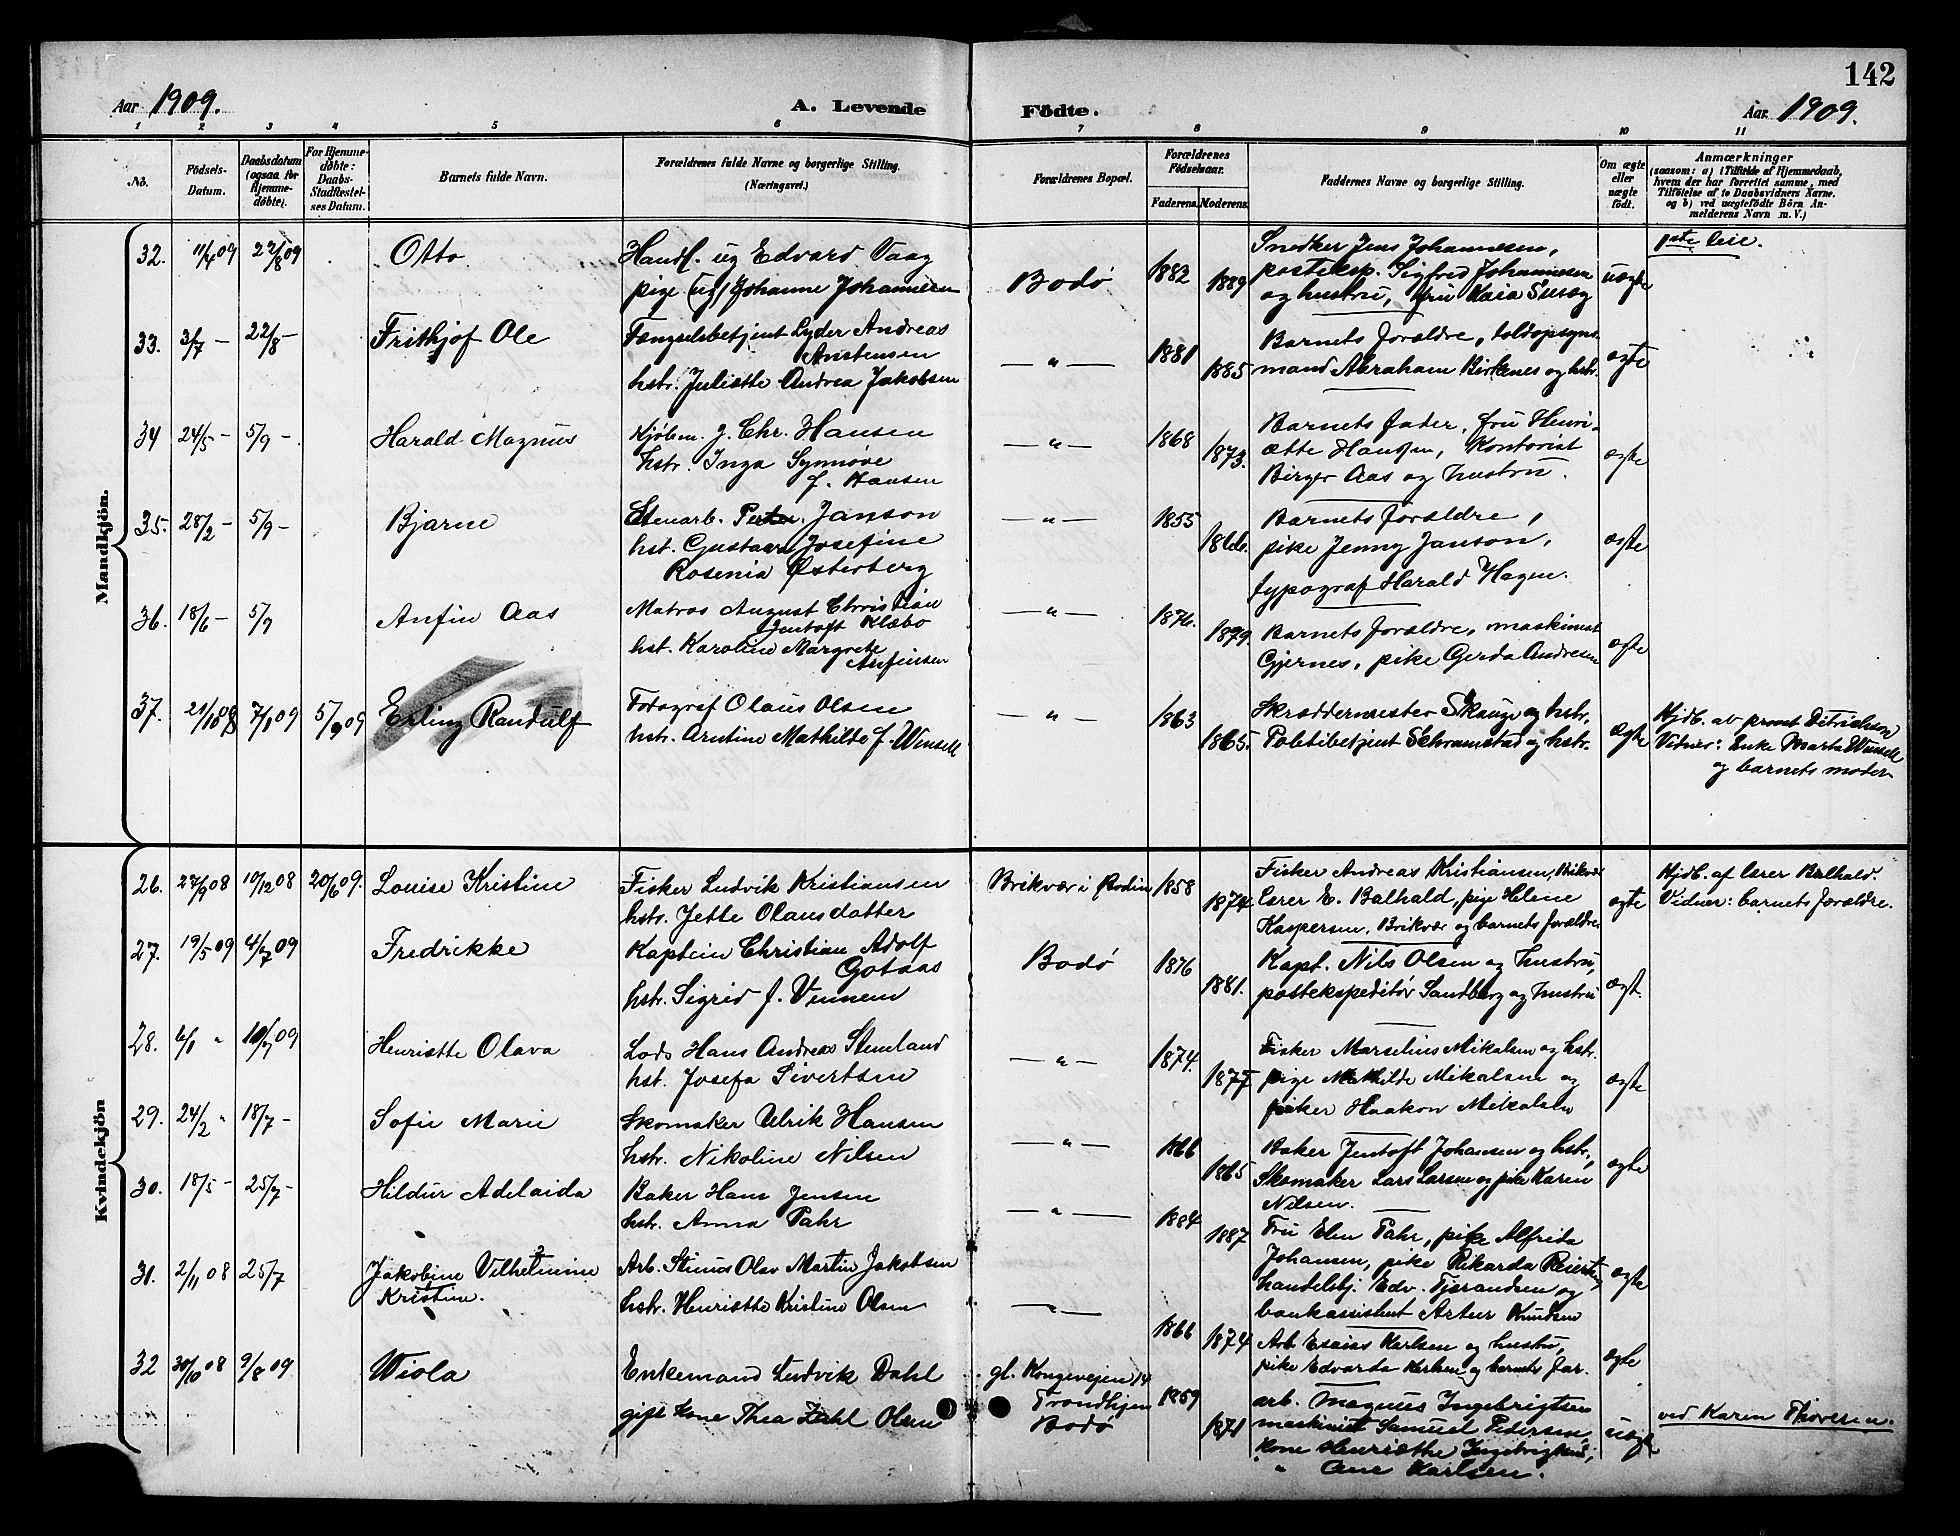 142
Aar 1909.
A. Levende Födte.
Aar 1909.
1 2 3 4 5 6 7 8 9 10 11
No.
Födsels-Datum.
Daabsdatum (ogsaa for Hjemme-døbte).
For Hjemme-døbte: Daabs-Stadfæstel-ses Datum.
Barnets fulde Navn.
Forældrenes fulde Navne og borgerlige Stilling. (Næringsvei.)
Forældrenes Bopæl.
Forældrenes Födselsaar.
Faderens. Moderens.
Faddernes Navne og borgerlige Stilling.
Om ægte eller uægte födt.
Anmærkninger
(saasom: a) i Tilfælde af Hjemmedaab, hvem der har forrettet samme, med Tilföielse af to Daabsvidners Navne, og b) ved uægtefödte Börn An-melderens Navn m. V.)
Mandkjön.
32. 11/4 09 22/8 09 Otto
Handl. ug Edvard Vaag
pige (ug) Johanne Johannesen
Bodø 1882 1889
Snedker Jens Johannesen,
posteksp. Sigfrid Johannesen
og hustru, fru Kaia
uægte
1ste leie.
33. 3/7 — 22/8 — Frithjof Ole
Fængselsbetjent Lyder Andreas
Aristensen
hstr. Juliette Andrea Jakobsen
— " — 1881 1885
Barnets forældre, toldopsyns-
mand Abraham Birkenes og hstr.
ægte
34 24/5 — 5/9 — Harald Magnus
Kjøbm. J. Chr. Hansen
hstr. Inga Synnøve
f. Hansen
— " — 1868 1873.
Barnets fader, fru Henri-
ætte Hansen, Kontorist
Birger Aas og hustru.
ægte
35. 28/2 — 5/9 — Bjarne
Stenarb. Petter Janson
hst. Gustava Josefine
Rosenia Østerberg
— " — 1855
Barnets forældre,
pike Jenny Janson,
typograf Harald Hagen.
ægte
36. 18/6 — 5/9 Anfin Aas
Matros August Christian
Jentoft Klæbo
hst. Karoline Margrete
Anfinsen
— " — 1876. 1879
Barnets forældre, maskinist
Gjernes, pike Gerda Andresen
ægte
37. 21/10 08 7/1 09 5/9 09 Erling Randulf
Fotograf Olaus Olsen
hstr. Arntine Mathilde f. Winsell
— " — 1863 1865.
Skræddermester Skauge og hstr.
Politibetjent Schramstad og hstr.
ægte
Hjdb. av provst Ditrichson
Vidner: Enke Marta Winsell
og barnets moder
Kvindekjön
26. 27/9 08 10/12 08 20/6 09. Louise Kristine
Fisker Ludvik Kristiansen
hstr. Jette Olausdatter
Brikvær i Bodin 1858 1874
Fisker Andreas Kristiansen, Brikvær
lærer E. Balhald, pige Helene
Kaspersen, Brikvær og barnets forældre
ægte
Hjdb. af lærer Balhald.
Vidner: barnets forældre.
27. 19/5 09 4/7 09 Fredrikke
Kaptein Christian Adolf
Gotaas
hstr. Sigrid f. Vennem
Bodø 1876 1881.
Kapt. Nils Olsen og hustru,
postekspeditør Sandberg og hustru
ægt.
28. 6/1 " 10/7 09 Henriette Olava
Lods Hans Andreas Steneland
hst. Josefa Sivertsen
— " — 1874. 1877
Fisker Marselius Mikalsen og hstr.
pige Mathilde Mikalsen og
fisker Haakon Mikalsen
ægte
29. 24/2 " 18/7 — Sofie Marie
Skomaker Ulrik Hansen
hstr. Nikoline Nilsen
— " — 1866 1865
Baker Jentoft Johansen og hstr.,
Skomaker Lars Larsen og pike Karen
Nilsen.
ægte
30. 18/5 — 25/7 — Hildur Adelaida
Baker Hans Jensen
hstr. Anna Pahr
— " — 1884 1887
Fru Elen Pahr, pike Alfrida
Johansen, pike Rikarda
handelsbj. Edv. Fjerandsen og
bankassistent Artur Knudsen
ægte
31. 2/11 08 25/7 Jakobine Vilhelmine
Kristine.
Arb. Olav Martin Jakobsen
hstr. Henriette Kristine Olsen
— " — 1866 1874
Arb. Esaias Karlsen og hustru,
pike Edvarda Karlsen og barnets far.
ægte
32 30/10 08 9/8 09 Wiola
Enkemand Ludvik Dahl
gift kone Thea Dahl Olsen
gl. Kongevejen 14
Trondhjem
Bodø
1859 1871
arb. Magnus Ingebrigtsen
maskinist Samuel Pedersen,
kone Henriette Ingebrigtsen,
" Ane Karlsen.
uægte
ved Karen Thoresen.